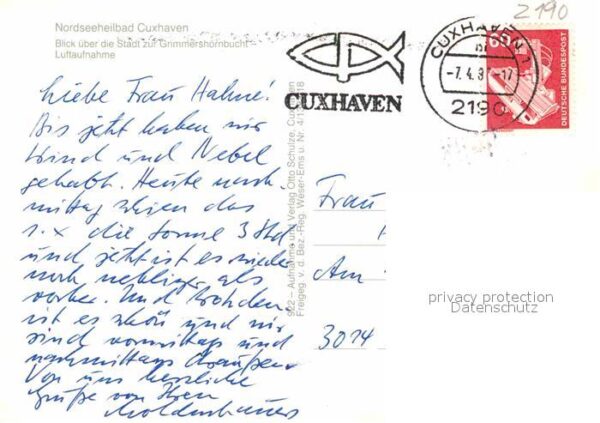 Nordseeheilbad Cuxhaven
Blick über die Stadt zur Grimmershornbucht
Luftaufnahme
2190
CUXHAVEN
CUXHAVEN 1
-7.4.8 -17
2190
60
DEUTSCHE BUNDESPOST
Liebe Frau Hahne!
Bis jetzt haben wir
Wind und Nebel
gehabt. Heute nach-
mittag schien das
1. x die Sonne 3 Std
und jetzt ist es wieder
noch nebliger als
vorher. Und trotzdem
ist es schön und wir
sind vormittags und
nachmittags draußen.
Von uns herzliche
Grüße von Ihren
Moldenhauers
922 – Aufnahme und Verlag Otto Schulze, Cuxhaven
Freigeg. v. d. Bez.-Reg. Weser-Ems u. Nr.
Frau
Am
3014
privacy protection
Datenschutz